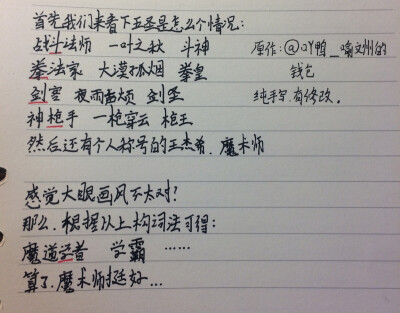 首先我们来看下五圣是怎么个情况：
战斗法师 一叶之秋 斗神
拳法家 大漠孤烟 拳皇
剑客 夜雨声烦 剑圣
神枪手 一枪穿云 枪王
然后还有个人称号的王杰希．魔术师
原作：@吖鸭_喻文州的
钱包
纯手写．有修改。
感觉大眼画风不太对？
那么．根据以上构词法可得：
魔道学者 学霸 ……
算了．魔术师挺好…